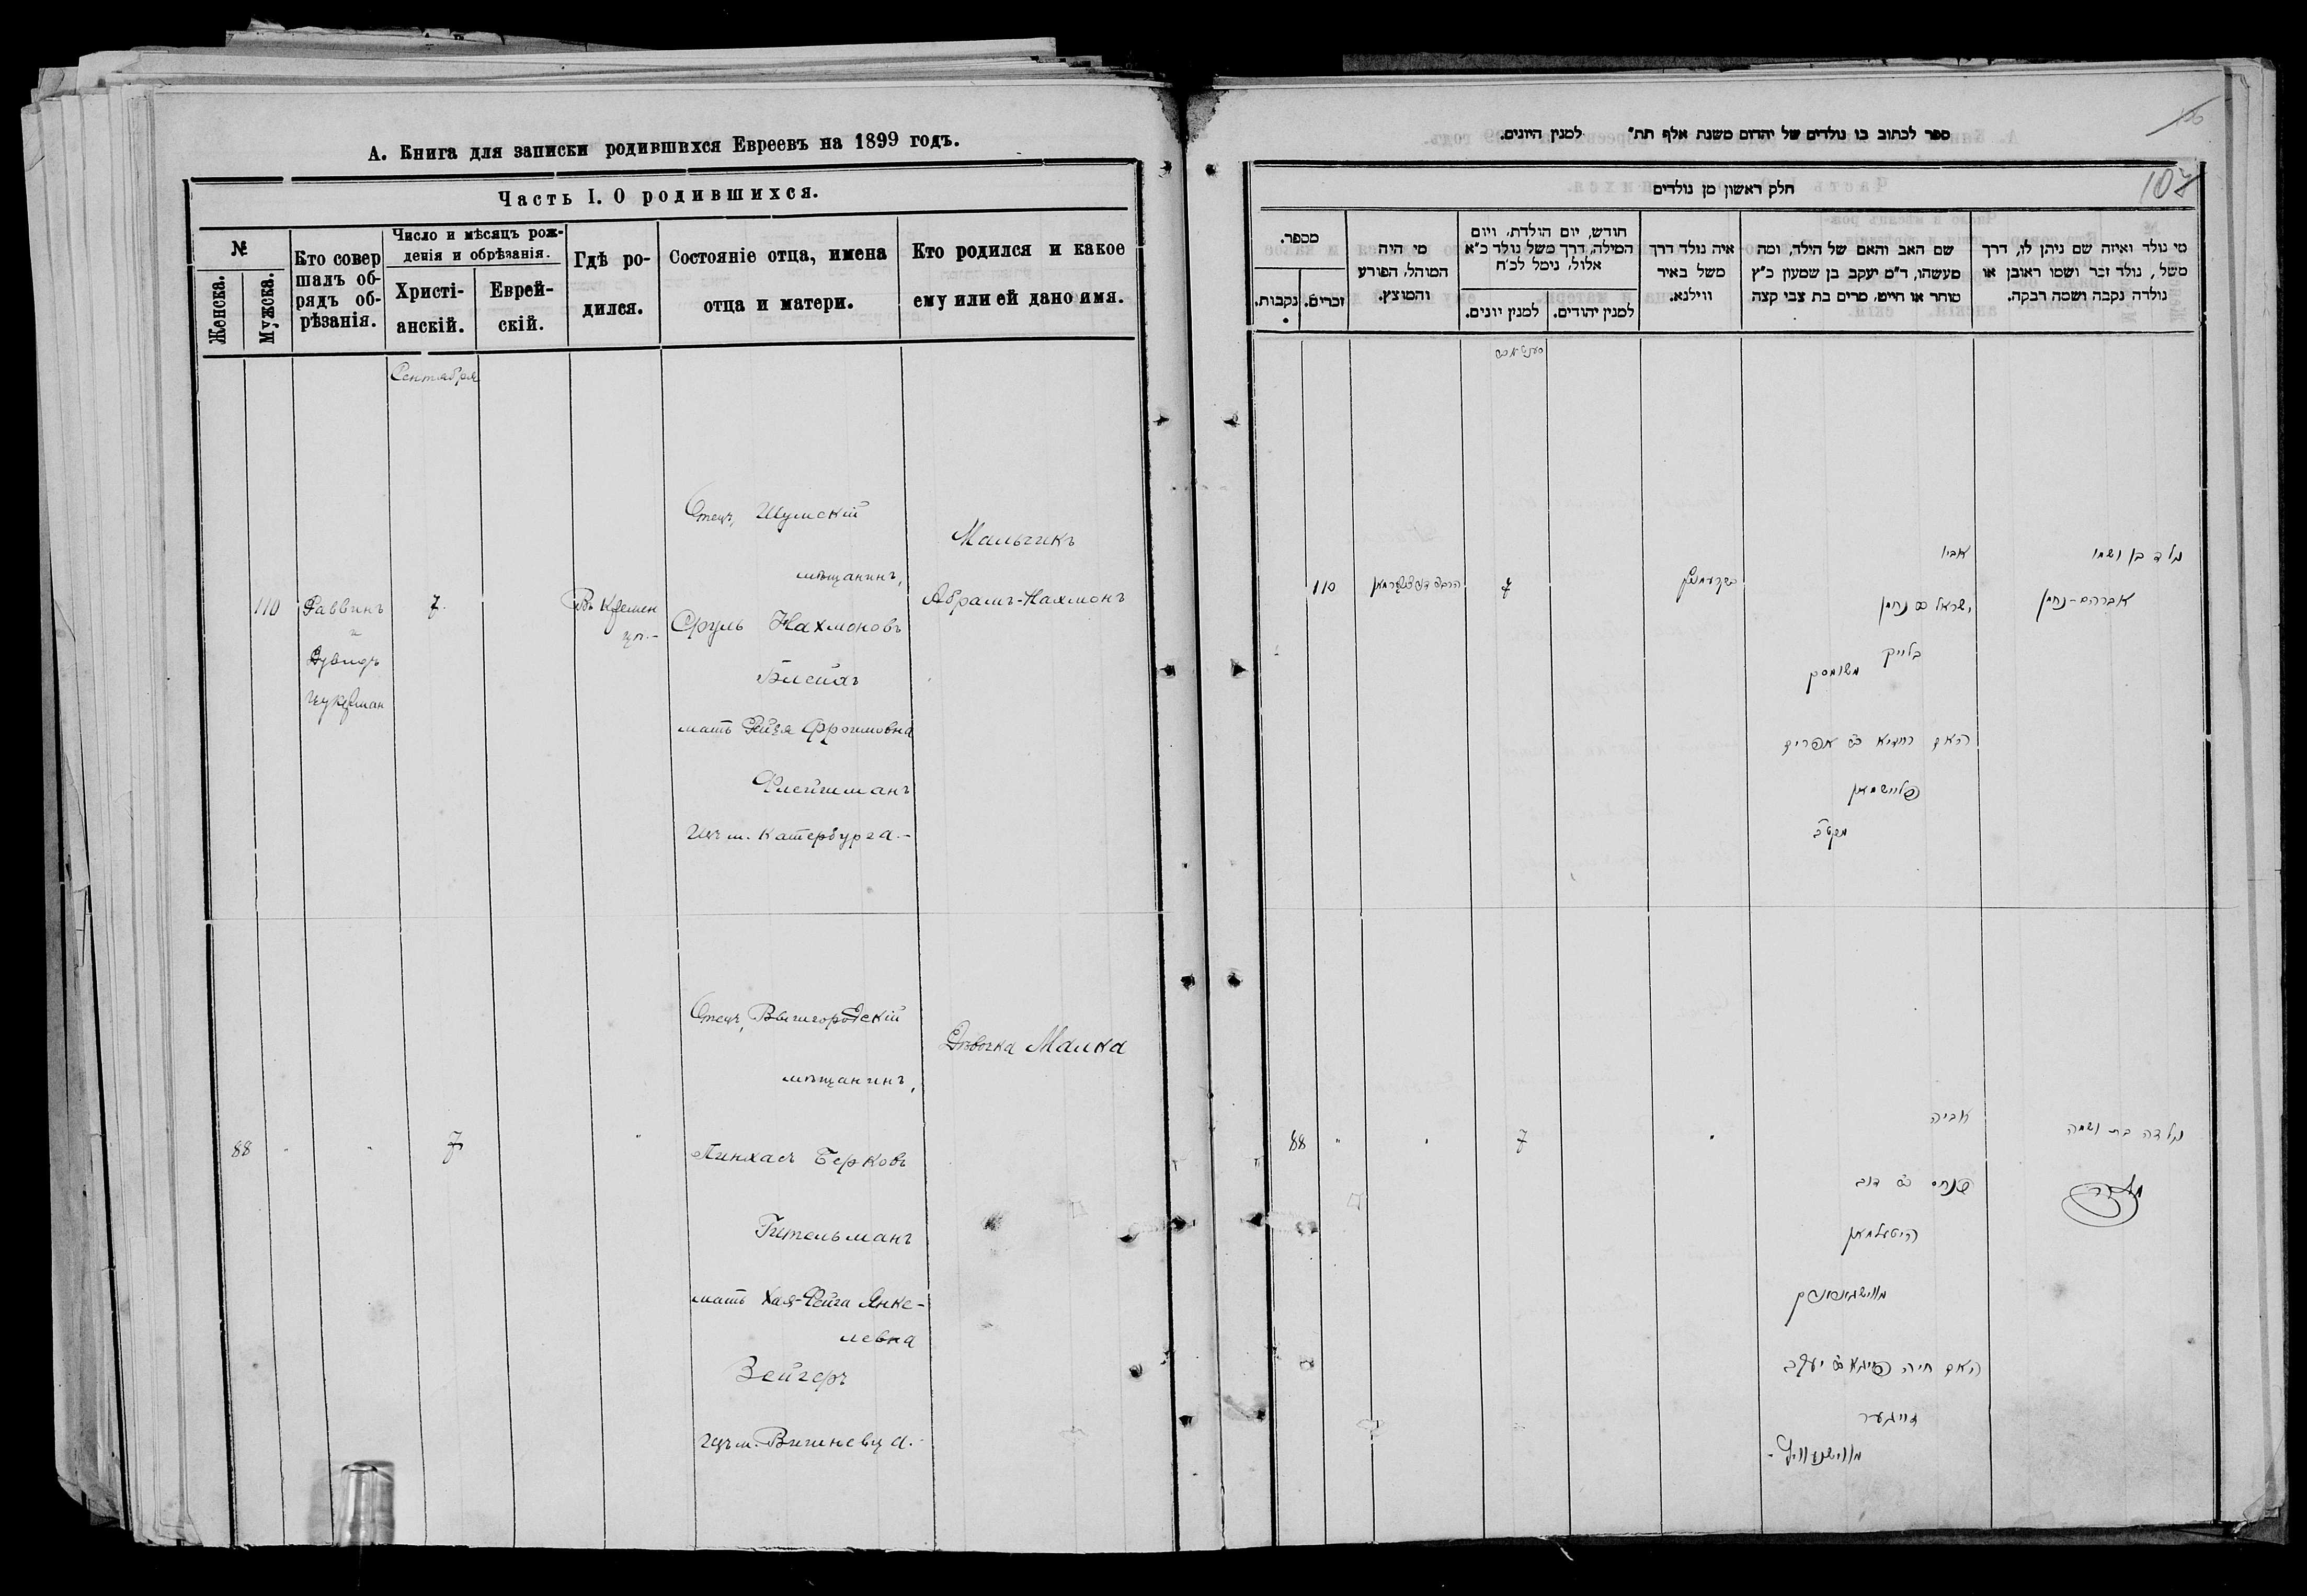 А. Книга для записки родившихся Евреевъ на 1899 годъ.
Часть I. О родившихся.
№
Женска.
Мужска.
Кто совер
шалъ об-
рядъ об-
рѣзанія.
Число и мѣсяцъ рож-
денія и обрѣзанія.
Христі-
анскій.
Еврей-
скій.
Гдѣ ро-
дился.
Состояніе отца, имена
отца и матери.
Кто родился и какое
ему или ей дано имя.
Сентября
110
Раввинъ
и
Дувидъ
Цукерман
7.
Въ Кремен
цѣ.-
Отецъ, Шумскій
мѣщанинъ,
Сруль Нахмоновъ
Блейхъ
мать Рейзя Фроимовна
Флейшманъ
изъ м. Катербурга.-
Мальчикъ
Абрамъ-Нахмонъ
88
"
"
7
"
Отецъ, Вышгородскій
мѣщанинъ,
Пинхасъ Берковъ
Гительманъ
мать Хая-Фейга Янке-
левна
Зейгеръ
изъ м. Вишневца.-
Дѣвочка Малка
ספר לכתוב בו נולדים של יהדום משנת אלף תת" למנין היונים.
107
חלק ראשון מן נולדים
מי נולד ואיזה שם ניתן לו, דרך
משל, נולד זכר ושמו ראובן או
נולדה נקבה ושמה רבקה.
שם האב והאם של הילד, ומה
מעשהו, ד"מ יעקב בן שמעון כ"ץ
סוחר או חייט, מרים בת צבי קצה
איה נולד דרך
משל באיר
ווילנא.
חודש, יום הולדת, ויום
המילה, דרך משל נולד כ"א
אלול, נימל לכ"ח
למנין יהודים.
למנין יונים.
מי היה
המוהל, הפורע
והמוצץ.
מספר.
זכרים.
נקבות.
נולד בן ושמו
אברהם-נחמן
אביו
ישראל ב נחמן
בלייך
משומסק
האם רייזיא ב אפרים
פליישמאן
7
110
נולדה בת ושמה
מלכה
אביה
פנחס ב דוב
היטעלמאן
האם חיה פייגא ב יעקב
זייגער
"
7
"
"
88